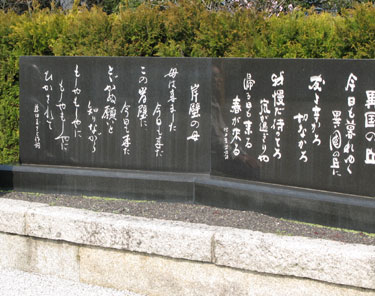 異国の丘
今日も暮れゆく
異国の丘に
友よ辛かろ
切なかろ
我慢だ待ってろ
嵐が過ぎりや
帰る日も来る
春が来る
岸壁の母
母は来ました
今日も来た
この岸壁に
今日も来た
とどかぬ願いと
知りながら
もしやもしやに
もしやもしやに
ひかされて